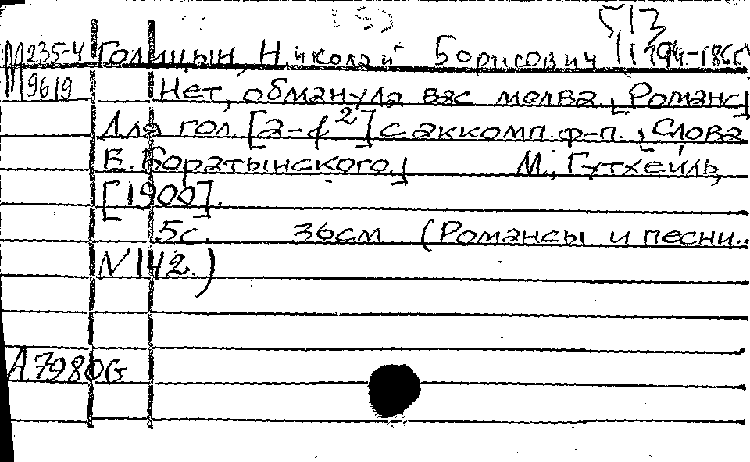 (S)
513
M235-4 Голицын, Николай Борисович, 1794-1866
M9619 Нет, обманула вас молва. [Романс]
Для гол. [a-f²] с аккомп. ф-п., [Слова
Е. Боратынского.] М., Гутхейль,
[1900].
5с. 36см (Романсы и песни..
N 142.)
A7980G